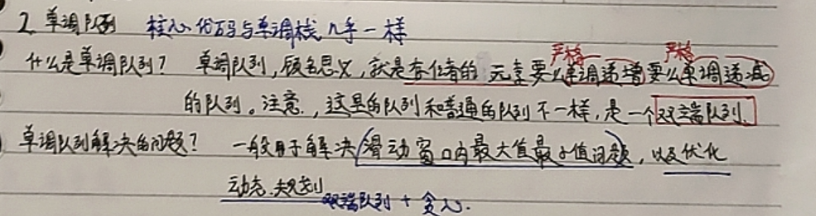 2. 单调队列 核心代码与单调栈几乎一样
严格 严格
什么是单调队列? 单调队列,顾名思义,就是存储的元素要么单调递增要么单调递减
的队列。注意,这里的队列和普通的队列不一样,是一个双端队列.
单调队列解决的问题? 一般用于解决滑动窗口内最大值最小值问题,以及优化
动态规划
双端队列 + 贪心.